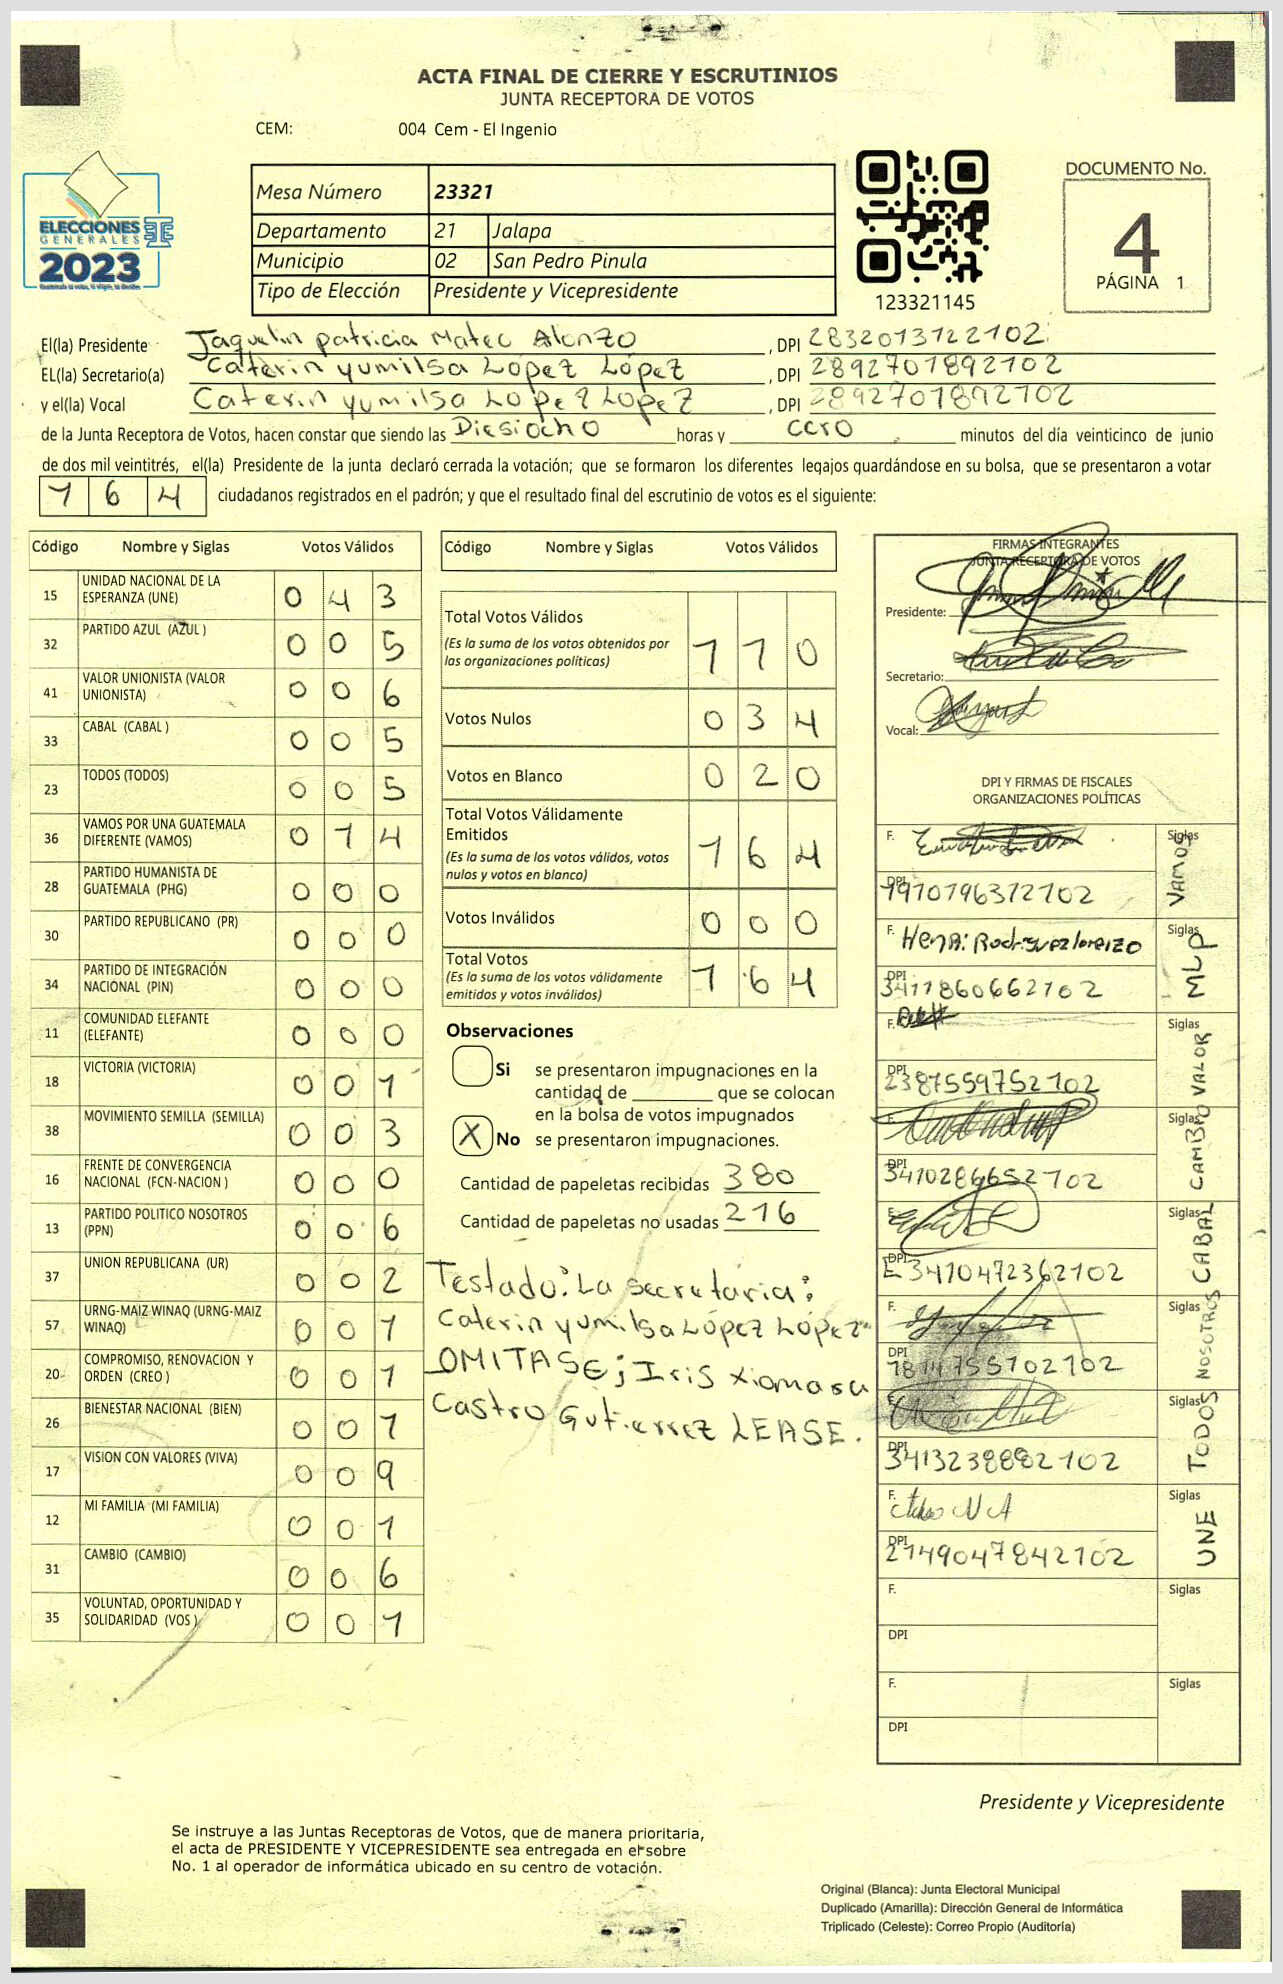 ACTA FINAL DE CIERRE Y ESCRUTINIOS
JUNTA RECEPTORA DE VOTOS
CEM: 004 Cem - El Ingenio
ELECCIONES
GENERALES
2023
Mesa Número 23321
Departamento 21 Jalapa
Municipio 02 San Pedro Pinula
Tipo de Elección Presidente y Vicepresidente
123321145
DOCUMENTO No.
4
PÁGINA 1
El(la) Presidente Jaquelin patricia Matec Alonzo, DPI 2832013122102
EL(la) Secretario(a) Caterin yumilsa López López, DPI 2892701892102
y el(la) Vocal Caterin yumilsa López López, DPI 2892701892102
de la Junta Receptora de Votos, hacen constar que siendo las Diesiocho horas y cero minutos del día veinticinco de junio
de dos mil veintitrés, el(la) Presidente de la junta declaró cerrada la votación; que se formaron los diferentes legajos guardándose en su bolsa, que se presentaron a votar
164 ciudadanos registrados en el padrón; y que el resultado final del escrutinio de votos es el siguiente:
Código Nombre y Siglas Votos Válidos
15 UNIDAD NACIONAL DE LA ESPERANZA (UNE) 0 4 3
32 PARTIDO AZUL (AZUL ) 0 0 5
41 VALOR UNIONISTA (VALOR UNIONISTA) 0 0 6
33 CABAL (CABAL ) 0 0 5
23 TODOS (TODOS) 0 0 5
36 VAMOS POR UNA GUATEMALA DIFERENTE (VAMOS) 0 1 4
28 PARTIDO HUMANISTA DE GUATEMALA (PHG) 0 0 0
30 PARTIDO REPUBLICANO (PR) 0 0 0
34 PARTIDO DE INTEGRACIÓN NACIONAL (PIN) 0 0 0
11 COMUNIDAD ELEFANTE (ELEFANTE) 0 0 0
18 VICTORIA (VICTORIA) 0 0 1
38 MOVIMIENTO SEMILLA (SEMILLA) 0 0 3
16 FRENTE DE CONVERGENCIA NACIONAL (FCN-NACION ) 0 0 0
13 PARTIDO POLITICO NOSOTROS (PPN) 0 0 6
37 UNION REPUBLICANA (UR) 0 0 2
57 URNG-MAIZ WINAQ (URNG-MAIZ WINAQ) 0 0 1
20 COMPROMISO, RENOVACION Y ORDEN (CREO ) 0 0 1
26 BIENESTAR NACIONAL (BIEN) 0 0 1
17 VISION CON VALORES (VIVA) 0 0 9
12 MI FAMILIA (MI FAMILIA) 0 0 1
31 CAMBIO (CAMBIO) 0 0 6
35 VOLUNTAD, OPORTUNIDAD Y SOLIDARIDAD (VOS ) 0 0 1
Código Nombre y Siglas Votos Válidos
Total Votos Válidos 1 1 0
(Es la suma de los votos obtenidos por
las organizaciones políticas)
Votos Nulos 0 3 4
Votos en Blanco 0 2 0
Total Votos Válidamente
Emitidos 1 6 4
(Es la suma de los votos válidos, votos
nulos y votos en blanco)
Votos Inválidos 0 0 0
Total Votos 1 6 4
(Es la suma de los votos válidamente
emitidos y votos inválidos)
Observaciones
Si se presentaron impugnaciones en la
cantidad de ________ que se colocan
en la bolsa de votos impugnados
X No se presentaron impugnaciones.
Cantidad de papeletas recibidas 380
Cantidad de papeletas no usadas 216
Testado: La secretaria:
Caterin yumilsa López López
OMITASE; Iris xiomara
Castro Gutierrez LEASE.
FIRMAS INTEGRANTES
JUNTA RECEPTORA DE VOTOS
Presidente:
Secretario:
Vocal:
DPI Y FIRMAS DE FISCALES
ORGANIZACIONES POLÍTICAS
F. Siglas VAMOS
DPI 1910796312102
F. Henri Rodriguez lorenzo Siglas MLP
DPI 3411860662102
F. Siglas VALOR
DPI 2387559752102
F. Siglas CAMBIO
DPI 3410286652102
F. Siglas CABAL
DPI 3410472362102
F. Siglas NOSOTROS
DPI 1814755102102
F. Siglas TODOS
DPI 3413238882102
F. Siglas UNE
DPI 2149047842102
F. Siglas
DPI
F. Siglas
DPI
Presidente y Vicepresidente
Se instruye a las Juntas Receptoras de Votos, que de manera prioritaria,
el acta de PRESIDENTE Y VICEPRESIDENTE sea entregada en el sobre
No. 1 al operador de informática ubicado en su centro de votación.
Original (Blanca): Junta Electoral Municipal
Duplicado (Amarilla): Dirección General de Informática
Triplicado (Celeste): Correo Propio (Auditoría)